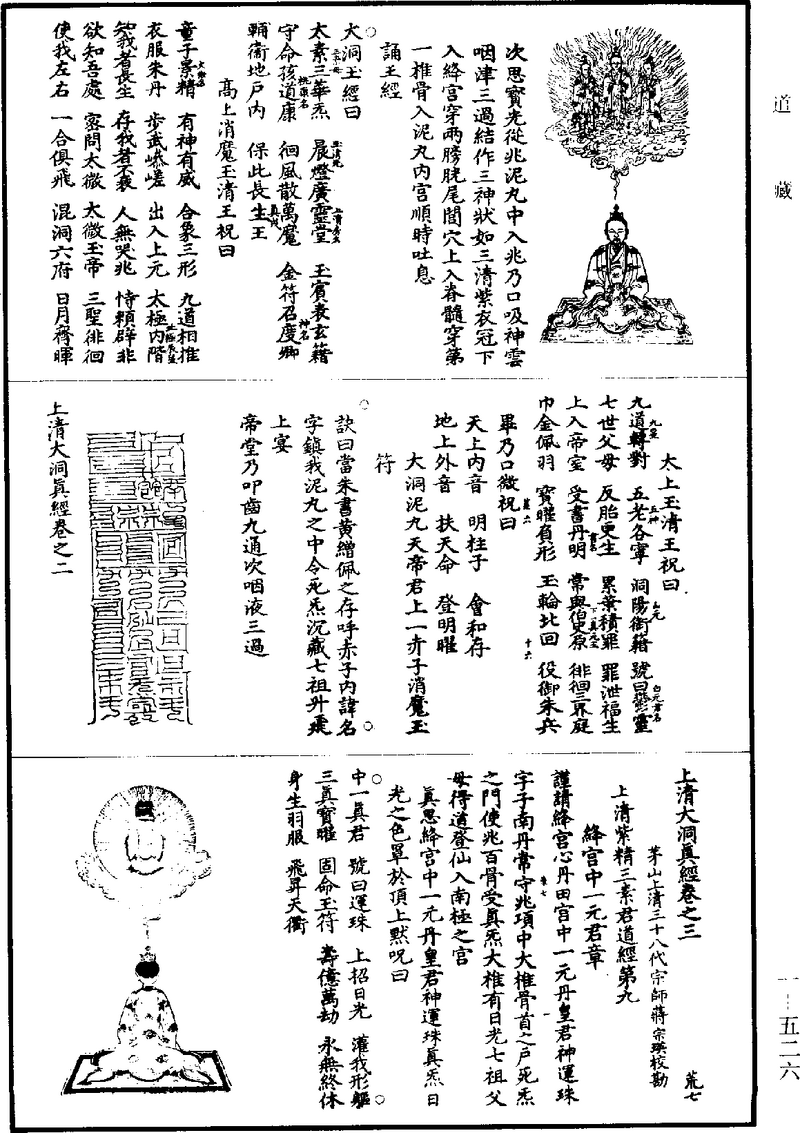 道藏
次思寳光從兆泥丸中入兆乃口吸神雲
咽津三過結作三神狀如三清紫衣冠下
入絳宫穿兩膀胱尾閭穴上入脊髓穿第
一椎骨入泥丸内宫順時吐息
誦玉經
大洞玉經曰
太素三華炁 晨燈廣靈堂 玉賓表玄籍
守命孩道康 桃孩名 徊風散萬魔 金符召度卿 神名
輔衛地戶内 保此長生王
高上消魔玉清王祝曰
童子景精 有神有威 合象三形 九道相推
衣服朱丹 步武嵾嵯 出入上元 太極内階
知我者長生 存我者不衰 人無哭兆 恃頼辟非
欲知吾處 密問太微 太微玉帝 三聖徘徊
使我左右 一合俱飛 混洞六府 日月齊暉
太上玉清王祝曰
九道轉對 五老各寧 五神 洞陽衛籍 號曰鬱靈 白元君名
七世父母 反胎更生 累葉積罪 罪泄福生
上入帝室 受書丹明 常與伯史原 徘徊三界庭
巾金佩羽 寳曜負形 玉輪北回 役御朱兵
十六
畢乃口微祝曰
天上内音 明柱子 會和存
地上外音 扶天命 登明曜
大洞泥丸天帝君上一赤子消魔玉
符
訣曰當朱書黄繒佩之存呼赤子内諱名
字鎮我泥丸之中令死炁沉藏七祖升飛
上宴
帝堂乃叩齒九通次咽液三過
上清大洞眞經卷之二
上清大洞眞經卷之三
荒七
茅山上清三十八代宗師蔣宗瑛校勘
上清紫精三素君道經第九
絳宫中一元君章
謹請絳宫心丹田宫中一元丹皇君神運珠
字子南丹常守兆項中大椎骨首之戶死炁
之門使兆百骨受真炁大椎有日光七祖父
母得道登仙入南極之宫
眞思絳宫中一元丹皇君神運珠眞炁日
光之色罩於頂上默呪曰
中一眞君 號曰運珠 上招日光 灌我形軀
三眞寳曜 固命玉符 壽億萬劫 永無終休
身生羽服 飛昇天衢
一—五二六